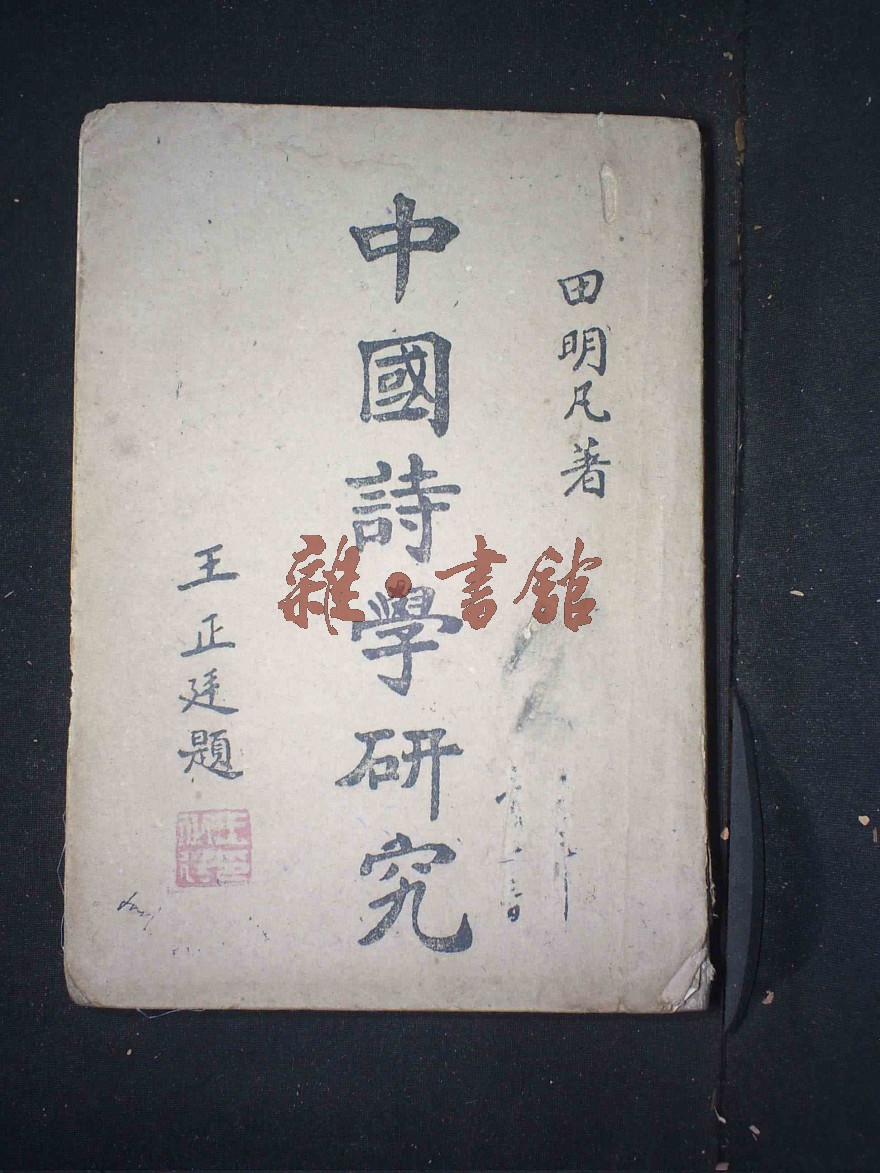 田明凡著
中國詩學研究
王正廷題
雜·書館